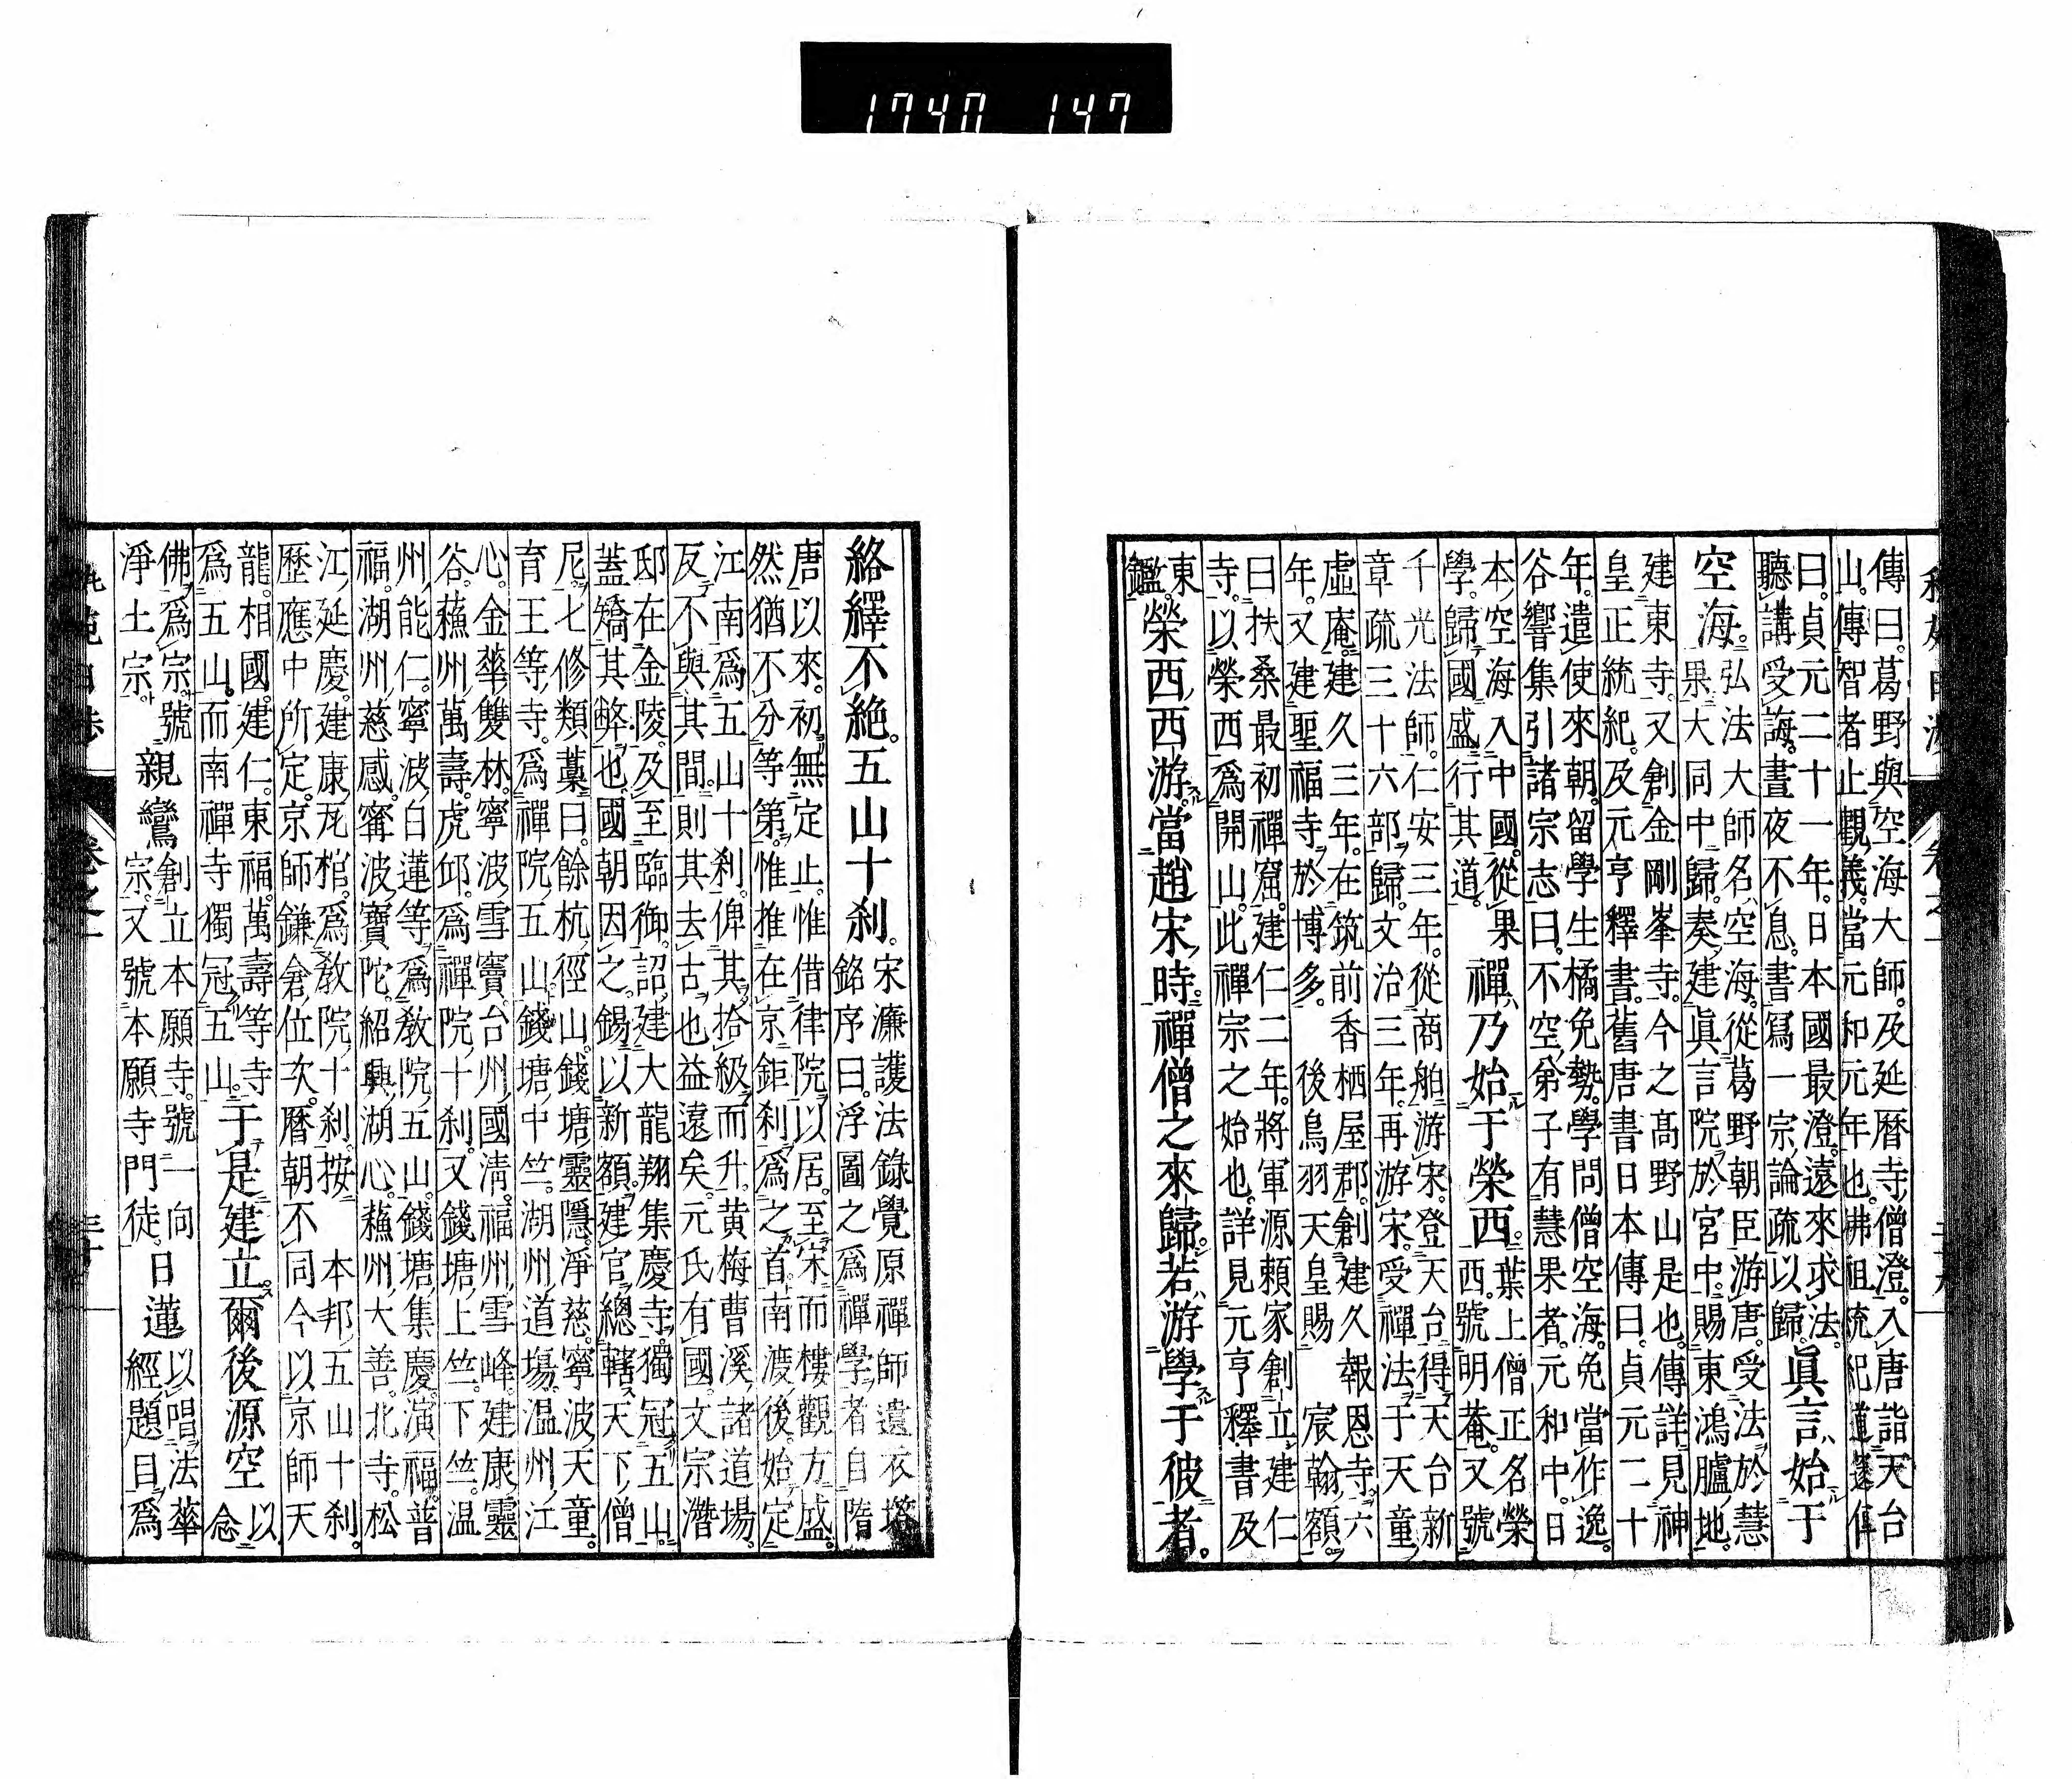 傳曰。葛野與空海大師。及延曆寺僧澄。入唐詣天台
山。傳智者止觀義。當元和元年也。佛祖統紀道邃傳
曰。貞元二十一年。日本國最澄。遠來求法。
聽講受誨。晝夜不息。書寫一宗論疏以歸。
眞言始于
空海。
弘法大師名空海。從葛野朝臣游唐。受法於慧
果。大同中歸。奏建眞言院於宮中。賜東鴻臚地。
建東寺。又創金剛峯寺。今之高野山是也。傳詳見神
皇正統紀。及元亨釋書。舊唐書日本傳曰。貞元二十
年。遣使來朝。留學生橘免勢。學問僧空海。免當作逸。
谷響集引諸宗志曰。不空弟子有慧果者。元和中。日
本空海入中國。從果
學。歸國盛行其道。
禪乃始于榮西。
葉上僧正名榮
西。號明菴。又號
千光法師。仁安三年。從商舶游宋。登天台得天台新
章疏三十六部歸。文治三年。再游宋。受禪法于天童
虛庵。建久三年。在筑前香栖屋郡。創建久報恩寺。六
年。又建聖福寺於博多。 後鳥羽天皇賜 宸翰額。
曰扶桑最初禪窟。建仁二年。將軍源賴家創立建仁
寺。以榮西爲開山。此禪宗之始也。詳見元亨釋書及
東
鑑。
榮西西游。當趙宋時。禪僧之來歸。若游學于彼者。
絡繹不絶。五山十刹。
宋濂護法錄覺原禪師遺衣塔
銘序曰。浮圖之爲禪學者。自隋
唐以來。初無定止。惟借律院以居。至宋而樓觀方盛。
然猶不分等第。惟推在京鉅刹爲之首。南渡後。始定
江南爲五山十刹。俾其拾級而升。黄梅曹溪諸道場。
反不與其間。則其去古也益遠矣。元氏有國。文宗潛
邸在金陵。及至臨御。詔建大龍翔集慶寺。獨冠五山。
蓋矯其弊也。國朝因之。錫以新額。建官總轄天下僧
尼。七修類藁曰。餘杭徑山。錢塘靈隱。淨慈。寧波天童。
育王等寺。爲禪院五山。錢塘中竺。湖州道場。温州江
心。金華雙林。寧波雪竇。台州國清。福州雪峰。建康靈
谷。蘓州萬壽。虎邱。爲禪院十刹。又錢塘上竺。下竺。温
州能仁。寧波白蓮等。爲敎院五山。錢塘集慶。演福。普
福。湖州慈感。寗波寶陀。紹興湖心。蘓州大善。北寺。松
江延慶。建康瓦棺。爲敎院十刹。按 本邦五山十刹。
歷應中所定。京師鎌倉位次。曆朝不同。今以京師天
龍。相國。建仁。東福。萬壽等寺
爲五山。而南禪寺獨冠五山。
于是建立爾後源空
以
念
佛爲宗。號
淨土宗。
親鸞
創立本願寺。號一向
宗。又號本願寺門徒。
日蓮
以唱法華
經題目爲